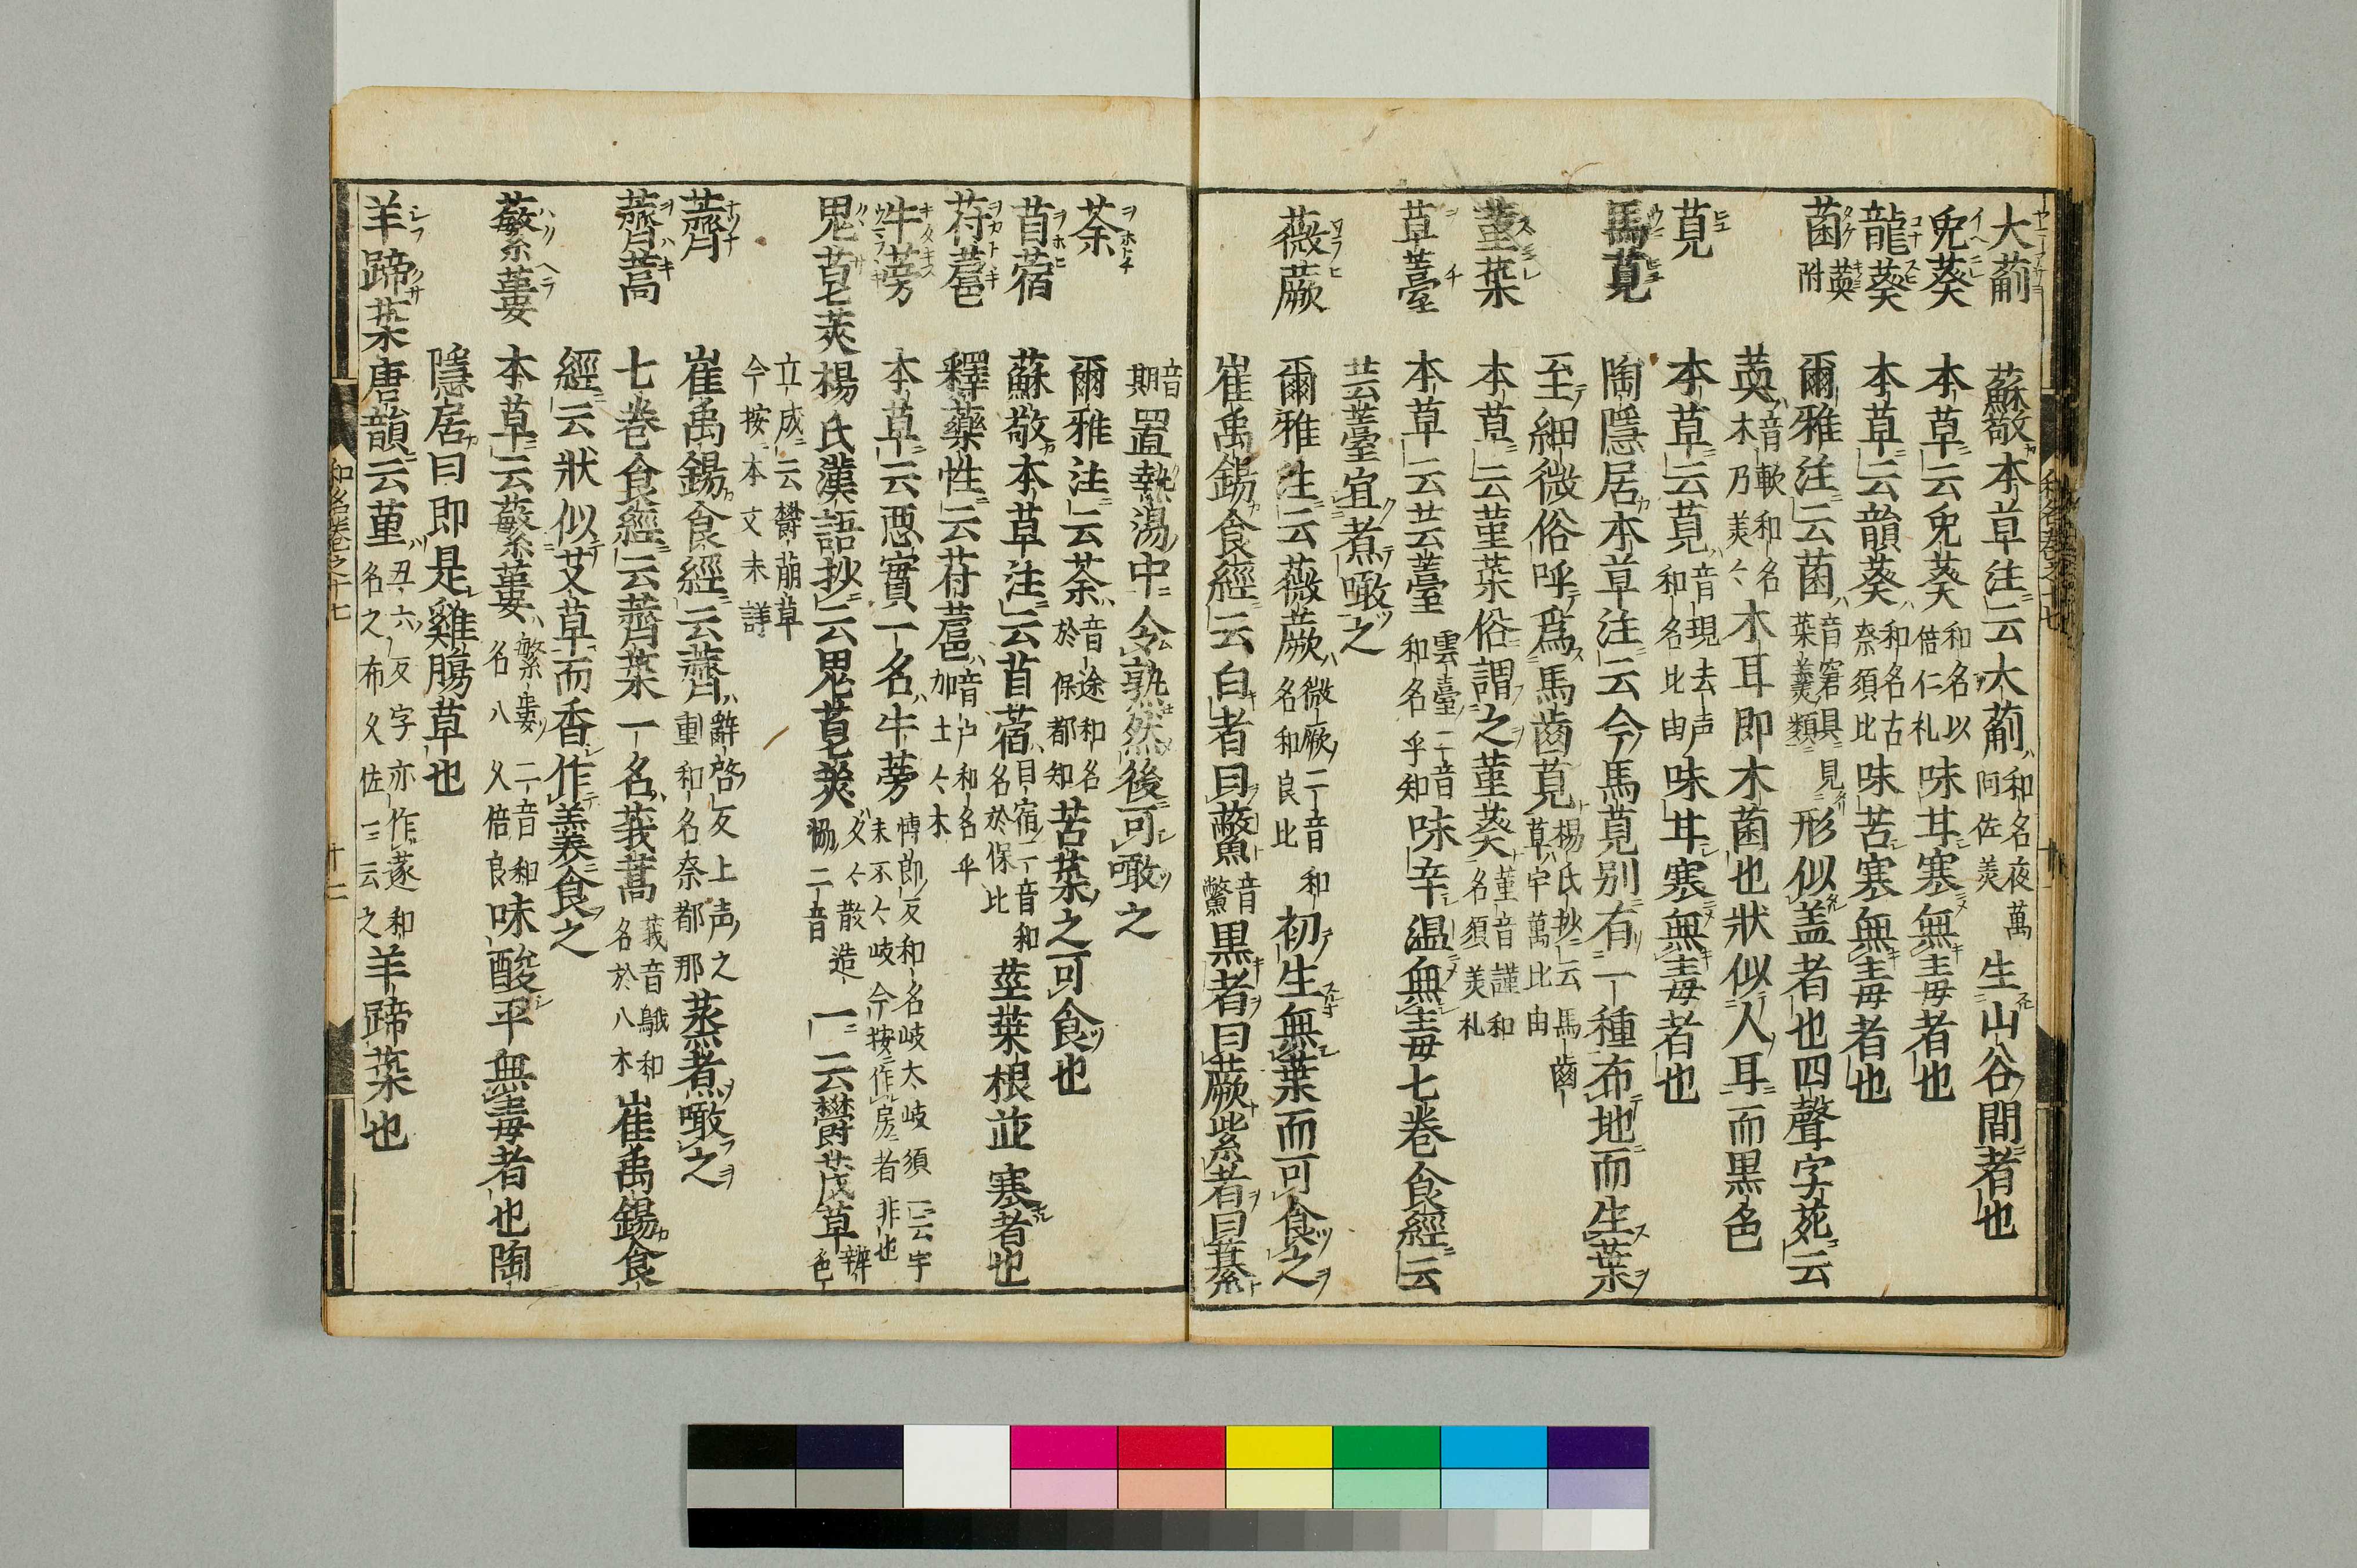 大葪 蘇敬本草注云大葪和名夜萬阿佐美生山谷間者也
兔葵 本草云兔葵和名以倍仁礼味甘寒無毒者也
龍葵 本草云龍葵和名古奈須比味苦寒無毒者也
菌 䓴附 爾雅注云菌音窘具見葉羹類形似盖者也四聲字苑云
䓴音軟和名木乃美々木耳即木菌也狀似人耳而黒色
莧 本草云莧音現去声和名比由味甘寒無毒者也
馬莧 陶隱居本草注云今馬莧別有一種布地而生葉
至細微俗呼爲馬齒莧楊氏抄云馬齒草宇萬比由
菫葉 本草云菫葉俗謂之菫葵菫音謹和名須美礼
草薹 本草云芸薹雲臺二音和名乎知味辛温無毒七卷食經云
芸薹宜煮噉之
薇蕨 爾雅注云薇蕨微厥二音和名和良比初生無葉而可食之
崔禹錫食經云白者曰虌音鼈黒者曰蕨紫者曰藄
音期置熱湯中令熟然後可噉之
荼 爾雅注云荼音途和名於保都知苦菜之可食也
苜蓿 蘇敬本草注云苜蓿目宿二音和名於保比莖葉根並寒者也
苻蓾 釋藥性云苻蓾音户和名乎加土々木
牛蒡 本草云悪實一名牛蒡博郎反和名岐太岐須一云宇末不々岐今按作房者非也
鬼皂莢 楊氏漢語抄云鬼皂莢久々散造一云欝茂草辨色
立成云欝萠草今按本文未詳
薺 崔禹錫食經云薺辭啓反上声之重和名奈都那蒸煮噉之
薺蒿 七巻食經云薺葉一名莪蒿莪音鵝和名於八木崔禹錫食
經云狀似艾草而香作羹食之
蘩蔞 本草云蘩蔞繁婁二音和名八久倍良味酸平無毒者也陶
隱居曰即是雞膓草也
羊蹄菜 唐韻云菫丑六反字亦作蓫和名之布久佐一云之羊蹄菜也
和名巻之十七
十二